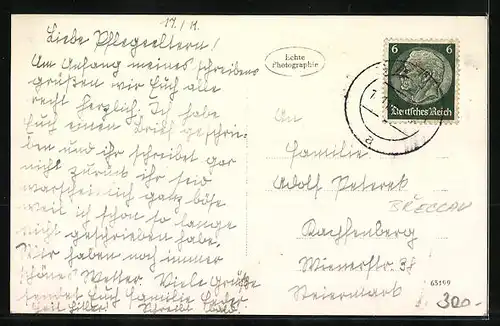 17./11.
Liebe Pflegeeltern!
Am Anfang meines schreibens
grüßen wir Euch alle
recht herzlich. Ich habe
Euch einen Brief geschrie-
ben und ihr schreibet gar
nicht zurück ihr seid
warscheinlich ganz böse
weil ich schon so lange
nicht geschrieben habe.
Wir haben noch immer
schönes Wetter. Viele Grüße
sendet Euch Familie
Heil Hitler! Schreibt bald.
Echte
Photographie
6 6
Deutsches Reich
a
An
Familie
Adolf Peterek
Wienerstr. 38
Steiermark
BŘECLAV
63199
300.-